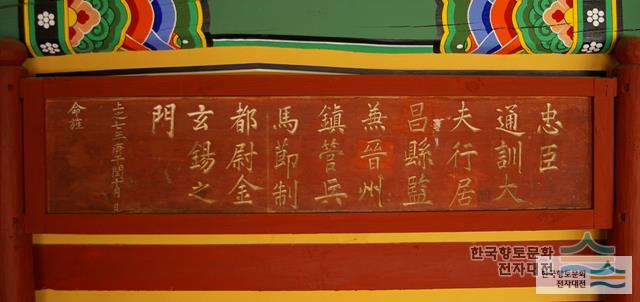 忠臣
通訓大
夫行居
昌縣監
兼晉州
鎮管兵
馬節制
都尉金
玄錫之
門
上之七年庚午閏十月 日
命旌
한국향토문화
전자대전
한국향토문화
전자대전